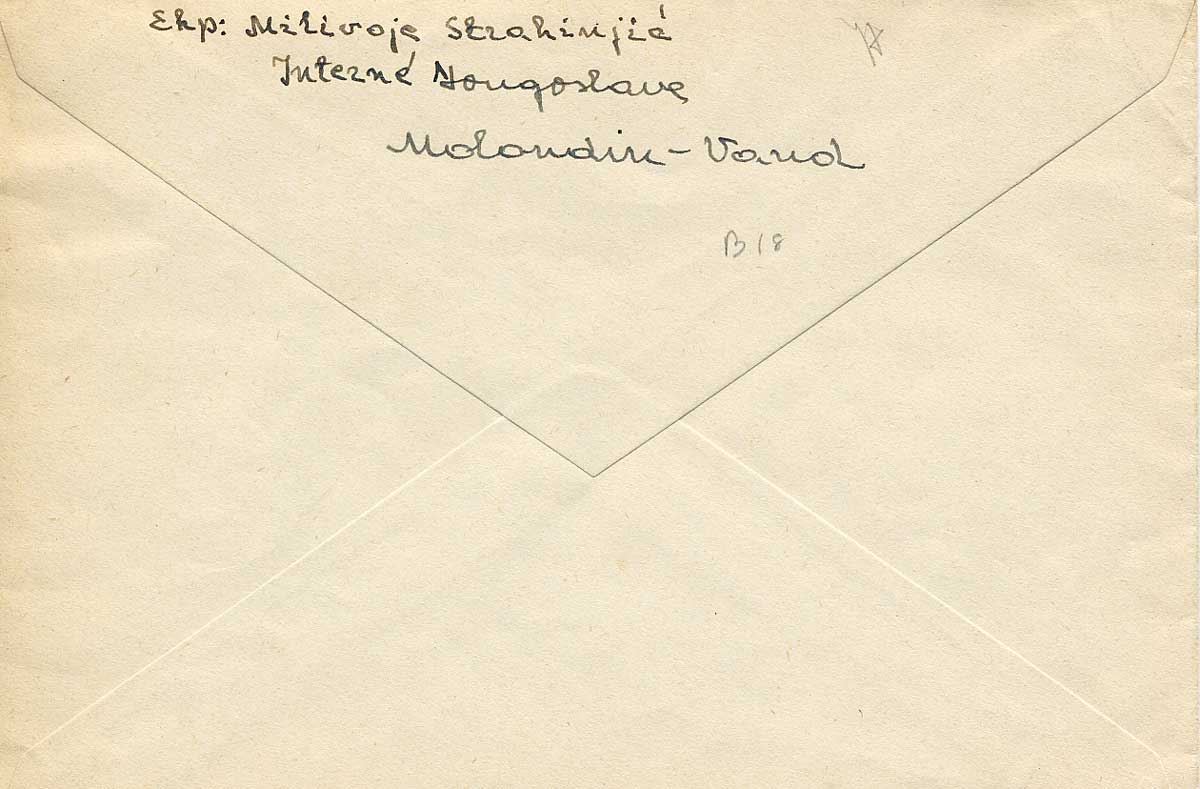 Ekp: Milivoje Strahinjić
Interné Yougoslave
Molondin - Vaud
B 18